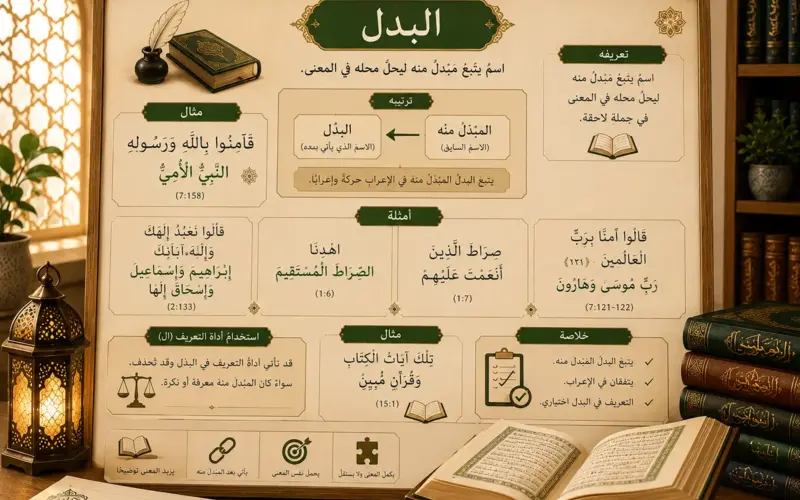 البدل
اسمُ يتَبعُ مَبْدلُ منه ليحلَّ محله في المعنى.
تعريفه
اسمُ يتَبعُ مَبْدلُ منه
ليحلَّ محله في المعنى
في جملة لاحقة.
مثال
فَآمِنُوا بِاللَّهِ وَرَسُولِهِ
النَّبِيُّ الْأُمِيُّ
(7:158)
ترتيبه
المبْدَلُ منْه
(الاسمُ السابق)
البدْل
(الاسمُ الذي يأتي بعده)
يتبعَ البدلُ المبْدَلُ منهُ في الإعرابِ حركةً وإعرابًا.
أمثلة
قَالُوا آمَنَّا بِرَبِّ
الْعَالَمِينَ ﴿١٢١﴾
رَبِّ مُوسَىٰ وَهَارُونَ
(7:121-122)
صِرَاطَ الَّذِينَ
أَنْعَمْتَ عَلَيْهِمْ
(1:7)
اهْدِنَا
الصِّرَاطَ الْمُسْتَقِيمَ
(1:6)
قَالُوا نَعْبُدُ إِلَهَكَ
وَإِلَٰهَ آبَائِكَ
إِبْرَاهِيمَ وَإِسْمَاعِيلَ
وَإِسْحَاقَ إِلَٰهًا
(2:133)
خلاصة
يتبعَ البدلُ المَبْدلَ منه.
يتفقان في الإعراب.
التعريف في البدل اختياري.
مثال
تِلْكَ آيَاتُ الْكِتَابِ
وَقُرْآنٍ مُّبِينٍ
(15:1)
استخدامُ أداة التعريف (ال)
قد تأتي أداةُ التعريفِ في البدْل وقد تُحذف.
سواءً كان المبْدلَ منهُ معرفة أو نكرة.
يكمل المعنى ولا يستقلّ
يحمل نفس المعنى
يأتي بعد المبْدَل منه
يزيد المعنى توضيحًا